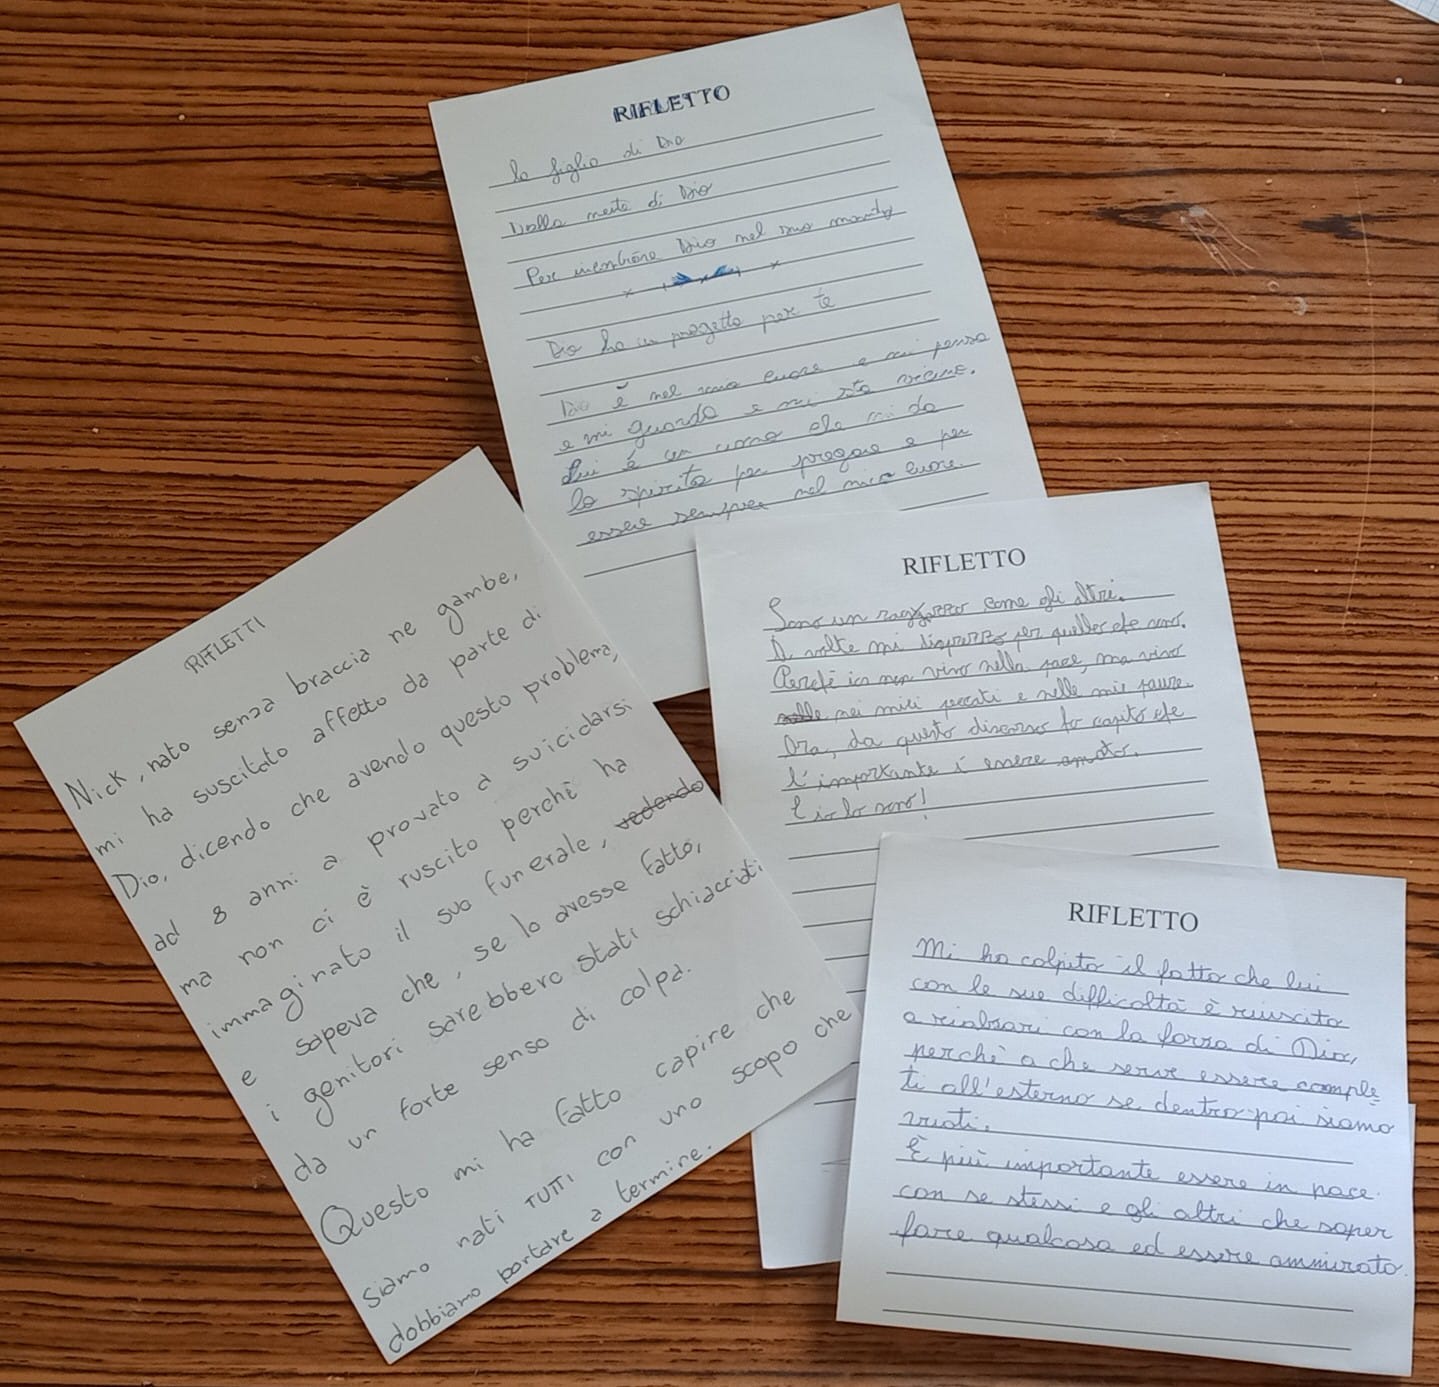 RIFLETTO
Io figlio di Dio
Dalla mente di Dio
Dio nel suo
Dio ha un progetto per te
Dio è nel mio cuore e mi pensa
e mi guarda e mi sta vicino.
Lui è un uomo che mi da
lo spirito per pregare e per
essere sempre nel mio cuore.
RIFLETTI
Nick, nato senza braccia ne gambe,
mi ha suscitato affetto da parte di
Dio, dicendo che avendo questo problema,
ad 8 anni a provato a suicidarsi
ma non ci è ruscito perchè ha
immaginato il suo funerale, vedendo
e sapeva che, se lo avesse fatto,
i genitori sarebbero stati schiacciati
da un forte senso di colpa.
Questo mi ha fatto capire che
siamo nati TUTTI con uno scopo che
dobbiamo portare a termine.
RIFLETTO
Sono un ragazzo come gli altri.
A volte mi disprezzo per quello che sono.
Perché io non vivo nella pace, ma vivo
nelle nei miei peccati e nelle mie paure.
Ora, da questo discorso ho capito che
l'importante è essere amato.
E io lo sono!
RIFLETTO
Mi ha colpito il fatto che lui
con le sue difficoltà è riuscito
a rialzarsi con la forza di Dio,
perchè a che serve essere comple
ti all'esterno se dentro poi siamo
vuoti.
È più importante essere in pace
con se stessi e gli altri che saper
fare qualcosa ed essere ammirato.